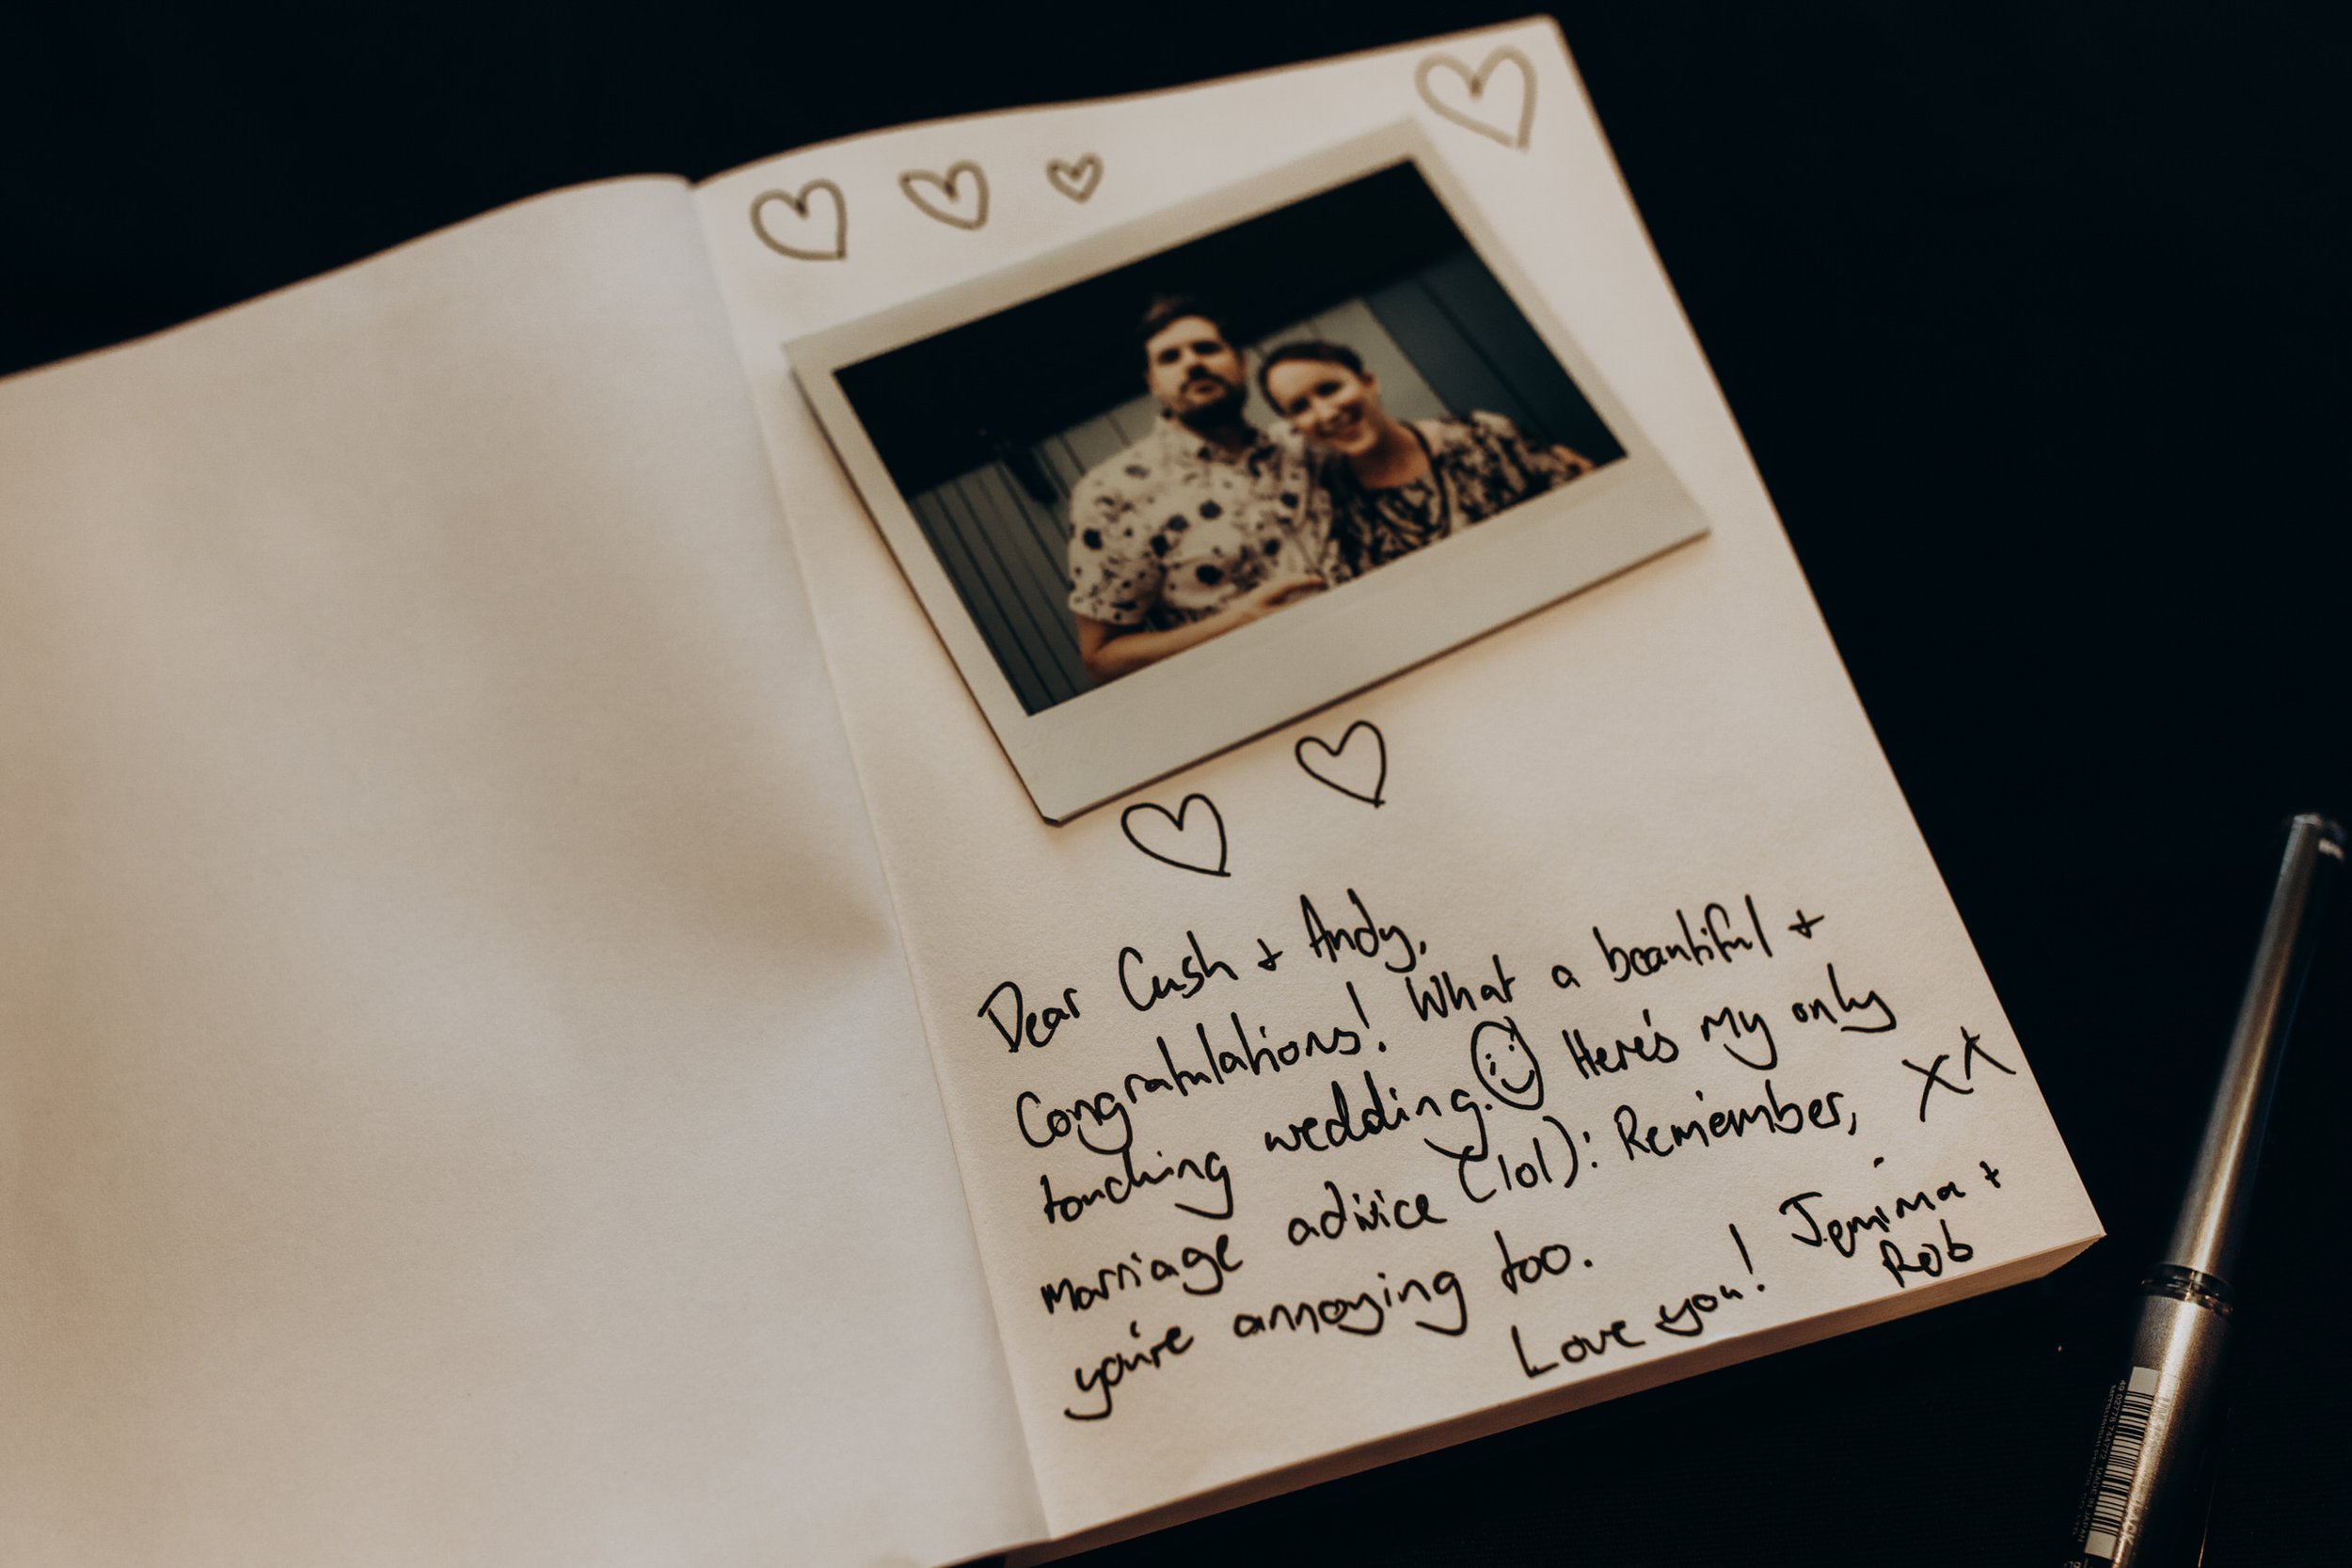 Dear Cush + Andy,
Congratulations! What a beautiful +
touching wedding. Here's my only
marriage advice (lol): Remember,
you're annoying too.
Love you! Jemima +
Rob
xx